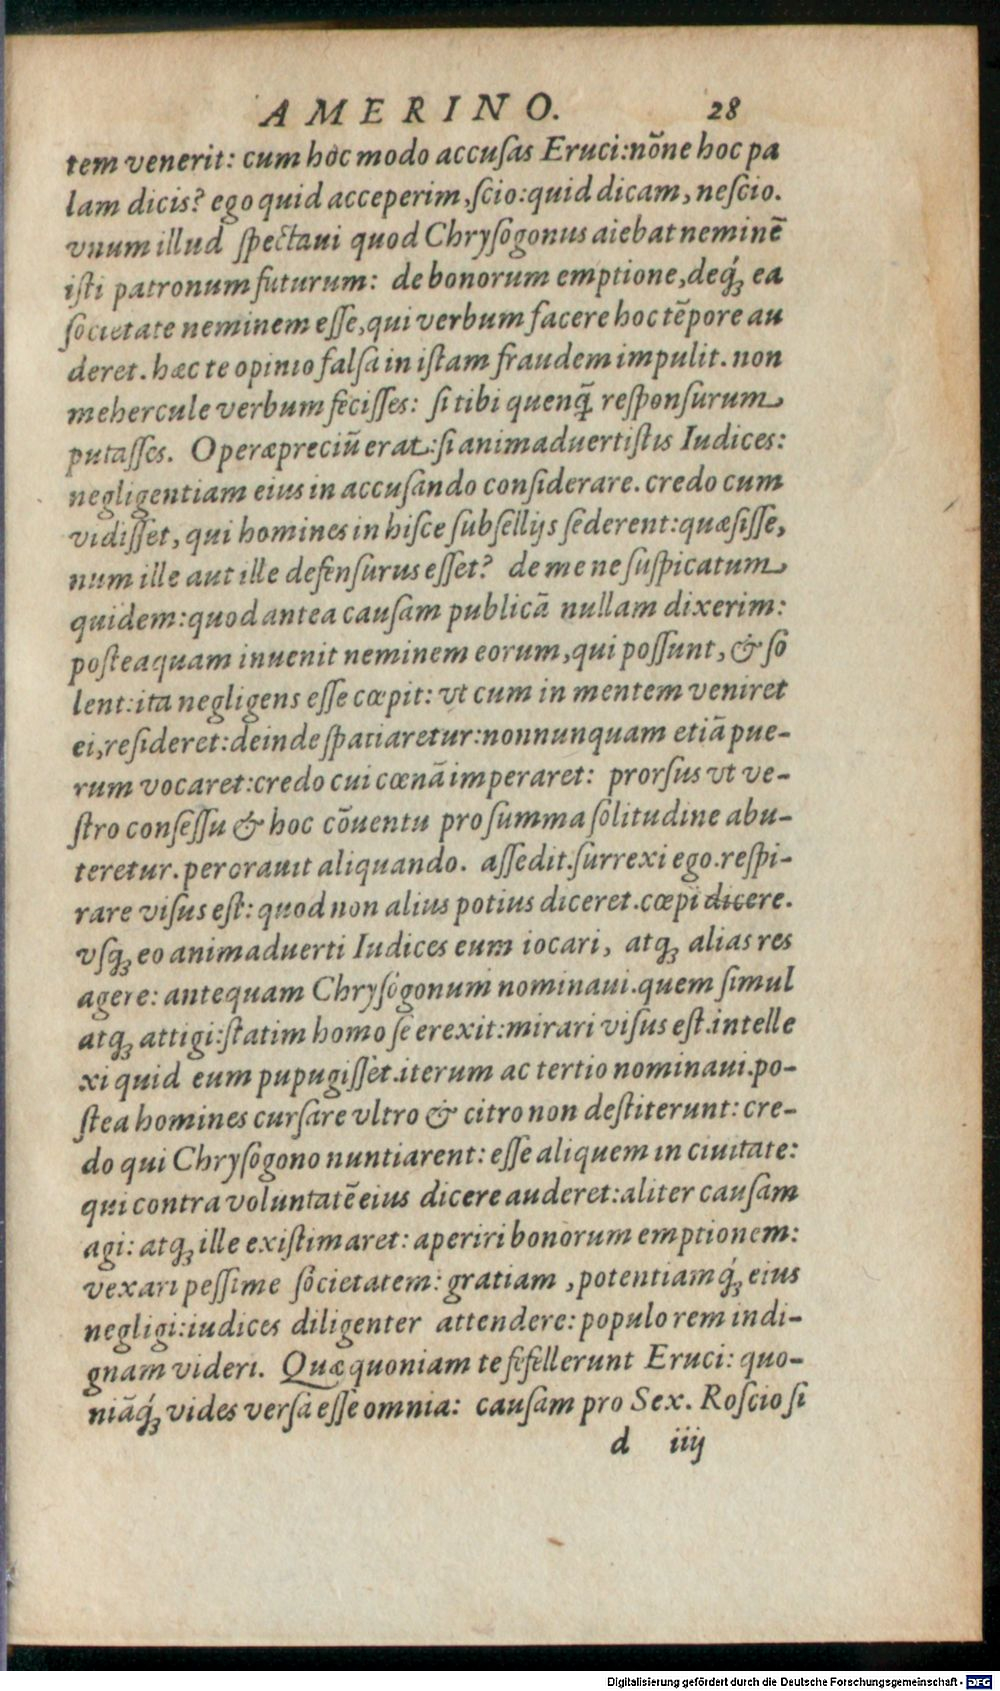 AMERINO. 28
tem venerit: cum hoc modo accuſas Eruci:nõne hoc pa
lam dicis? ego quid acceperim,ſcio:quid dicam, neſcio.
vnum illud ſpectaui quod Chryſogonus aiebat neminẽ
iſti patronum futurum: de bonorum emptione,deq́ꝫ ea
ſocietate neminem eſſe,qui verbum facere hoc tẽpore au
deret. hæc te opinio falſa in iſtam fraudem impulit. non
mehercule verbum feciſſes: ſi tibi quenq̃ reſponſurum
putaſſes. Operæpreciũ erat:ſi animaduertiſtis Iudices:
negligentiam eius in accuſando conſiderare. credo cum
vidiſſet, qui homines in hiſce ſubſellijs ſederent:quæſiſſe,
num ille aut ille defenſurus eſſet? de me ne ſuſpicatum
quidem:quod antea cauſam publicã nullam dixerim:
poſteaquam inuenit neminem eorum,qui poſſunt, & ſo
lent:ita negligens eſſe cœpit: vt cum in mentem veniret
ei,reſideret:deinde ſpatiaretur:nonnunquam etiã pue-
rum vocaret:credo cui cœnã imperaret: prorſus vt ve-
ſtro conſeſſu & hoc cõuentu pro ſumma ſolitudine abu-
teretur. perorauit aliquando. aſſedit.ſurrexi ego.reſpi-
rare viſus eſt: quod non alius potius diceret.cœpi dicere.
vſqꝫ eo animaduerti Iudices eum iocari, atqꝫ alias res
agere: antequam Chryſogonum nominaui.quem ſimul
atqꝫ attigi:ſtatim homo ſe erexit:mirari viſus eſt.intelle
xi quid eum pupugiſſet.iterum ac tertio nominaui.po-
ſtea homines curſare vltro & citro non deſtiterunt: cre-
do qui Chryſogono nuntiarent: eſſe aliquem in ciuitate:
qui contra voluntatẽ eius dicere auderet:aliter cauſam
agi: atqꝫ ille exiſtimaret: aperiri bonorum emptionem:
vexari peſſime ſocietatem: gratiam ,potentiamq́ꝫ eius
negligi:iudices diligenter attendere: populo rem indi-
gnam videri. Quæ quoniam te fefellerunt Eruci: quo-
niãq́ꝫ vides verſa eſſe omnia: cauſam pro Sex. Roſcio ſi
d iiij
Digitalisierung gefördert durch die Deutsche Forschungsgemeinschaft - DFG